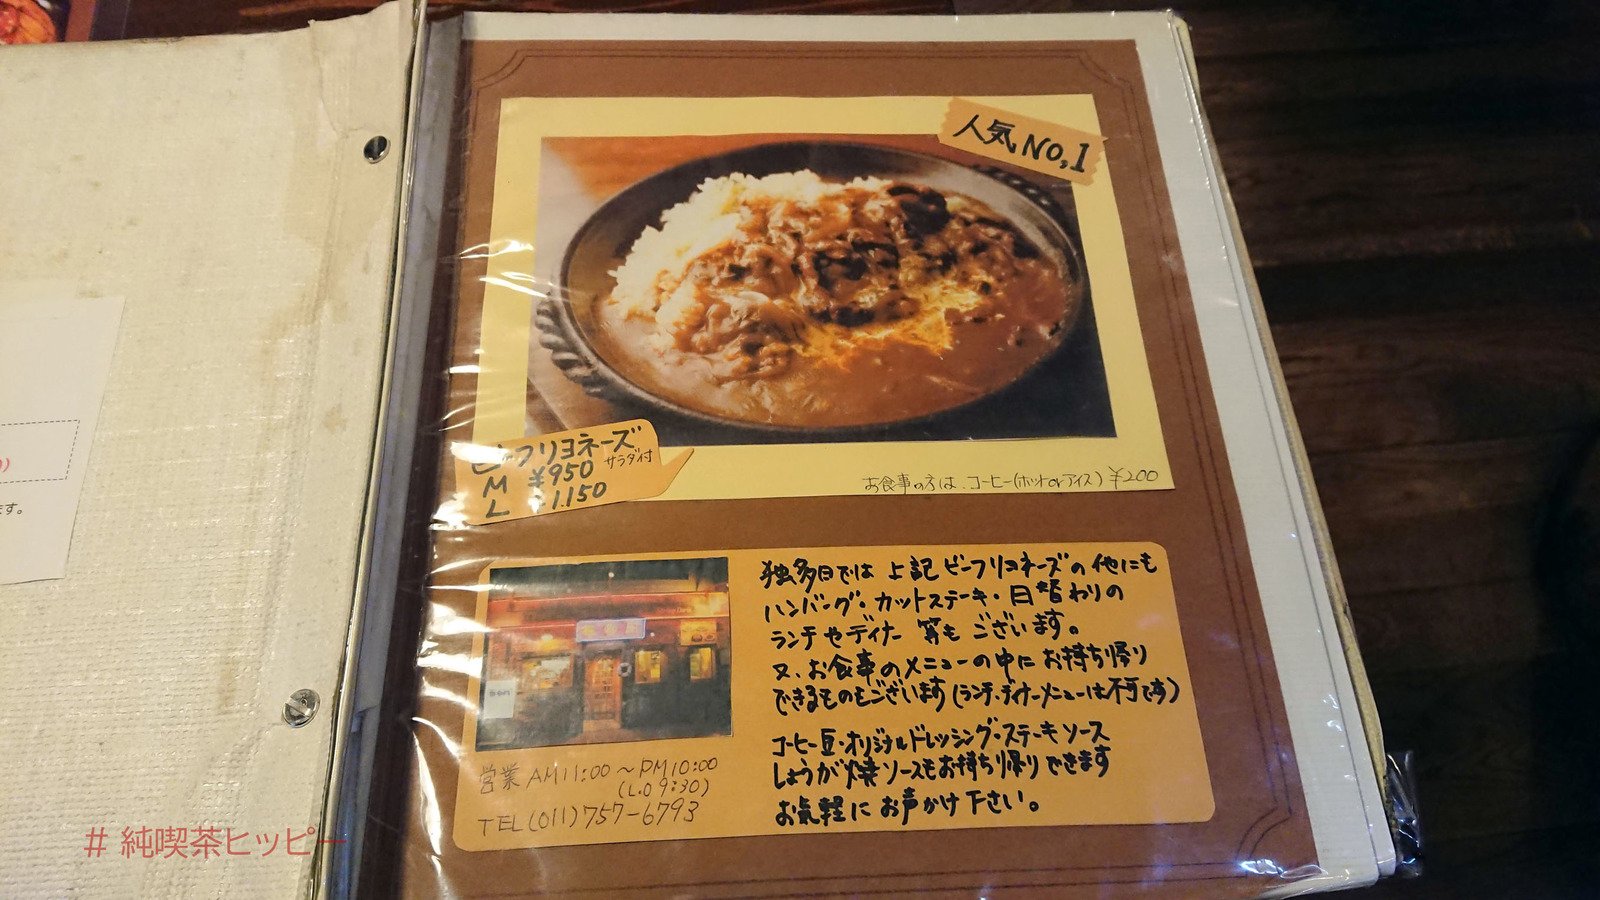 人気NO,1
ビーフリヨネーズ
サラダ付
M ¥950
L ¥1.150
お食事の方は、コーヒー(ホットorアイス) ¥200
独多日では 上記ビーフリヨネーズの他にも
ハンバーグ・カットステーキ・日替わりの
ランチやディナー 等も ございます。
又、お食事のメニューの中に お持ち帰り
できるものもございます(ランチ・ディナーメニューは不可です)
コーヒー豆・オリジナルドレッシング・ステーキソース
しょうが焼ソースもお持ち帰りできます
お気軽に お声かけ下さい。
営業 AM11:00〜PM10:00
(L.O 9:30)
TEL(011)757-6793
ます。
# 純喫茶ヒッピー